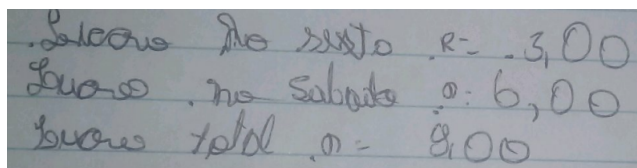 Lucro No sexto R= 3,00
Lucro no Sabado : 6,00
Lucro total = 9,00